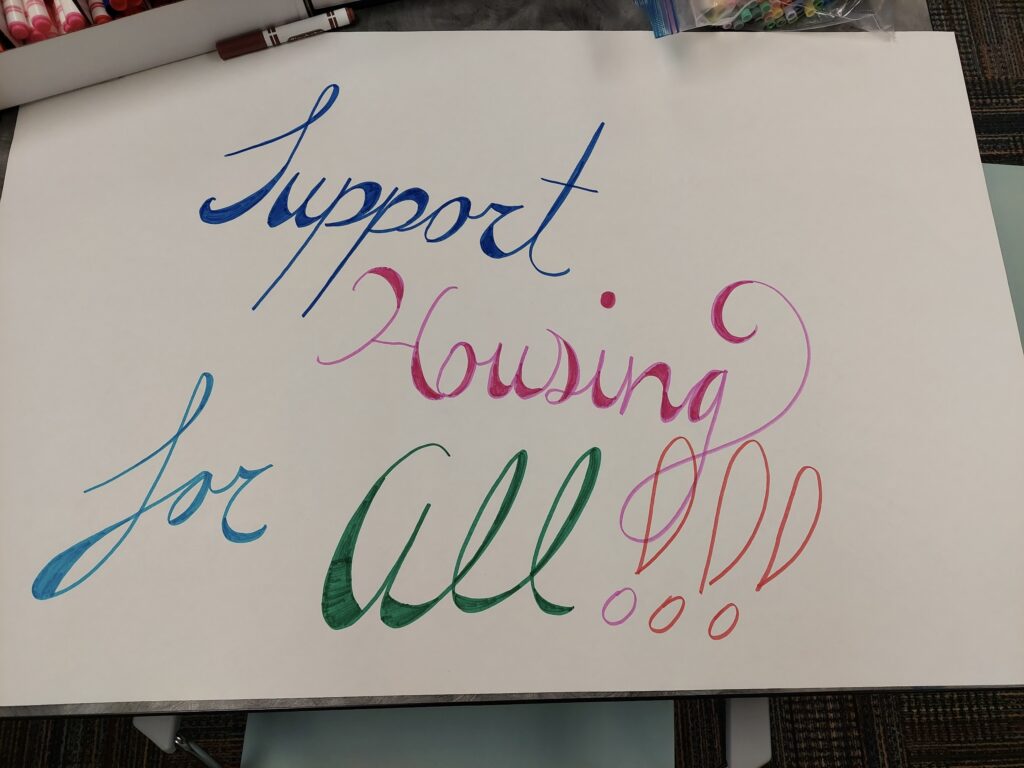 Support
Housing
for All!!!